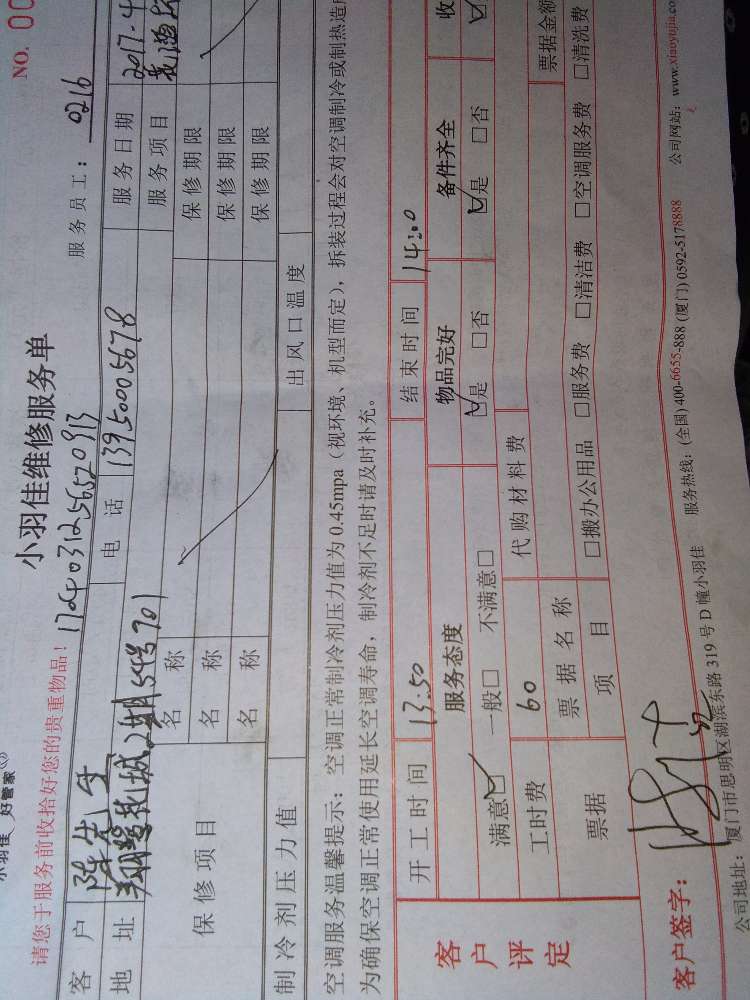 小羽佳 好管家
小羽佳维修服务单
NO. 00
请您于服务前收拾好您的贵重物品！ 1724031256520913 服务员工： 0216
客户 陈先生 电话 13950005678 服务日期 2017-4
地址 2期54号701 服务项目
保修项目 名称 保修期限
名称 保修期限
名称 保修期限
制冷剂压力值 出风口温度
空调服务温馨提示：空调正常制冷剂压力值为 0.45mpa（视环境、机型而定），拆装过程会对空调制冷或制热造
为确保空调正常使用延长空调寿命，制冷剂不足时请及时补充。
客户评定
开工时间 13:50 结束时间 14:20
服务态度 物品完好 备件齐全 收
满意☑ 一般□ 不满意□ ☑是 □否 ☑是 □否 ☑
工时费 60 代购材料费
票据 票据名称 票据金额
项目 □搬办公用品 □服务费 □清洁费 □空调服务费 □清洗费
客户签字：
公司地址：厦门市思明区湖滨东路 319 号 D 幢小羽佳 服务热线：(全国) 400-6655-888 (厦门) 0592-5178888 公司网站：www.xiaoyujia.co